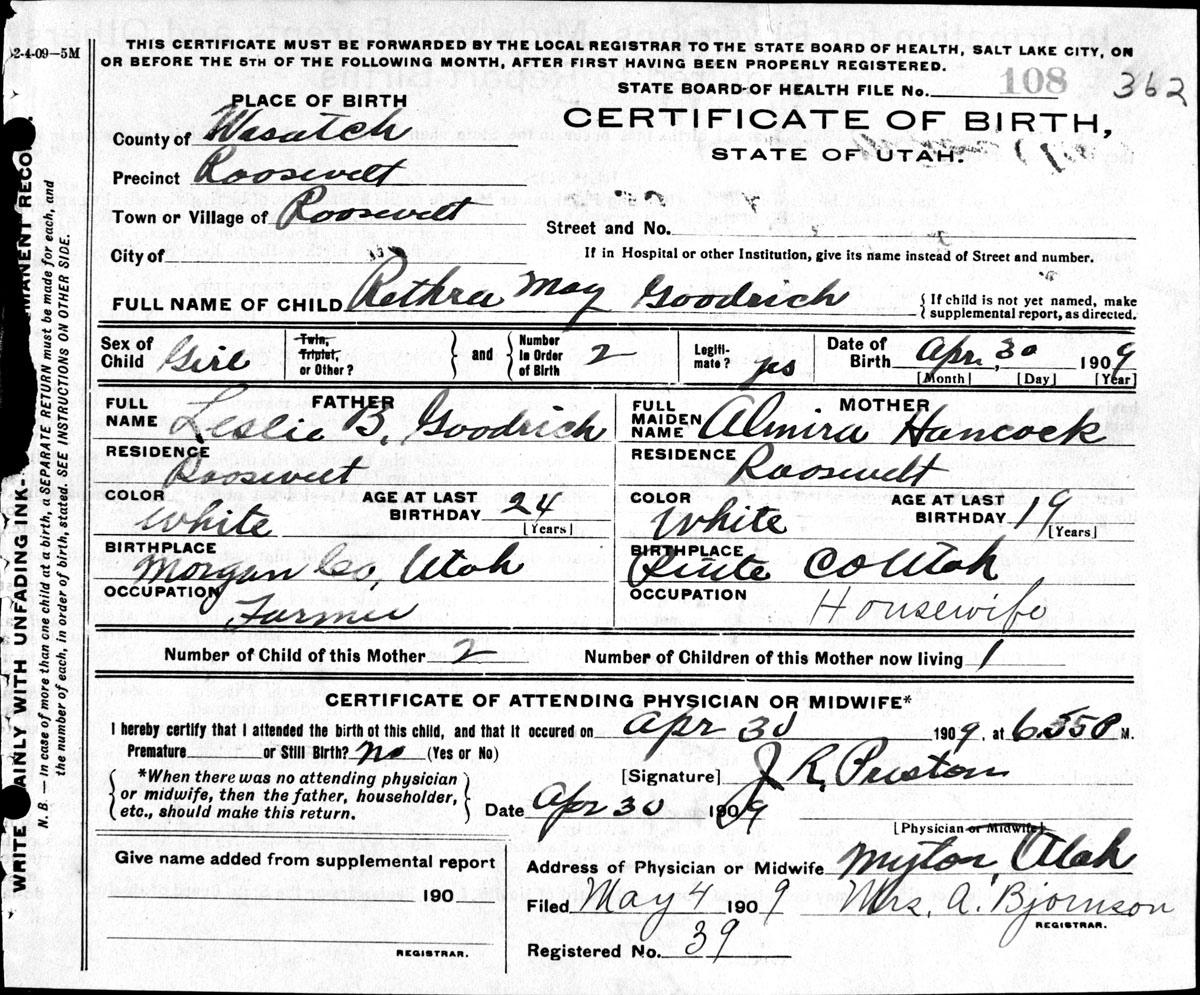 2-4-09—5M
THIS CERTIFICATE MUST BE FORWARDED BY THE LOCAL REGISTRAR TO THE STATE BOARD OF HEALTH, SALT LAKE CITY, ON
OR BEFORE THE 5TH OF THE FOLLOWING MONTH, AFTER FIRST HAVING BEEN PROPERLY REGISTERED.
STATE BOARD OF HEALTH FILE No. 108 362
PLACE OF BIRTH
CERTIFICATE OF BIRTH,
STATE OF UTAH.
County of Wasatch
Precinct Roosevelt
Town or Village of Roosevelt
Street and No.
City of
If in Hospital or other Institution, give its name instead of Street and number.
FULL NAME OF CHILD Rethra May Goodrich
{ If child is not yet named, make
supplemental report, as directed.
Sex of Child Girl
Twin, Triplet, or Other?
and
Number in Order of Birth 2
Legiti- mate? yes
Date of Birth Apr. 30 1909
[Month] [Day] [Year]
FATHER
FULL NAME Leslie B. Goodrich
MOTHER
FULL MAIDEN NAME Almira Hancock
RESIDENCE Roosevelt
RESIDENCE Roosevelt
COLOR White
AGE AT LAST BIRTHDAY 24 [Years]
COLOR White
AGE AT LAST BIRTHDAY 19 [Years]
BIRTHPLACE Morgan Co, Utah
BIRTHPLACE Piute Co Utah
OCCUPATION Farmer
OCCUPATION Housewife
Number of Child of this Mother 2
Number of Children of this Mother now living 1
CERTIFICATE OF ATTENDING PHYSICIAN OR MIDWIFE*
I hereby certify that I attended the birth of this child, and that it occured on Apr 30 1909, at 6.55 P M.
Premature or Still Birth? No (Yes or No)
*When there was no attending physician
or midwife, then the father, householder,
etc., should make this return.
[Signature] J R, Preston
Date Apr 30 1909
[Physician or Midwife]
Give name added from supplemental report
190
REGISTRAR.
Address of Physician or Midwife Myton, Utah
Filed May 4 1909 Mrs. A. Bjornson
REGISTRAR.
Registered No. 39
N. B. — In case of more than one child at a birth, a SEPARATE RETURN must be made for each, and
the number of each, in order of birth, stated. SEE INSTRUCTIONS ON OTHER SIDE.
WRITE AINLY WITH UNFADING INK- MANENT RECO